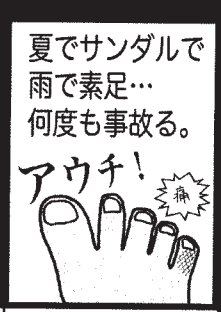 夏でサンダルで
雨で素足…
何度も事故る。
アウチ!
痛